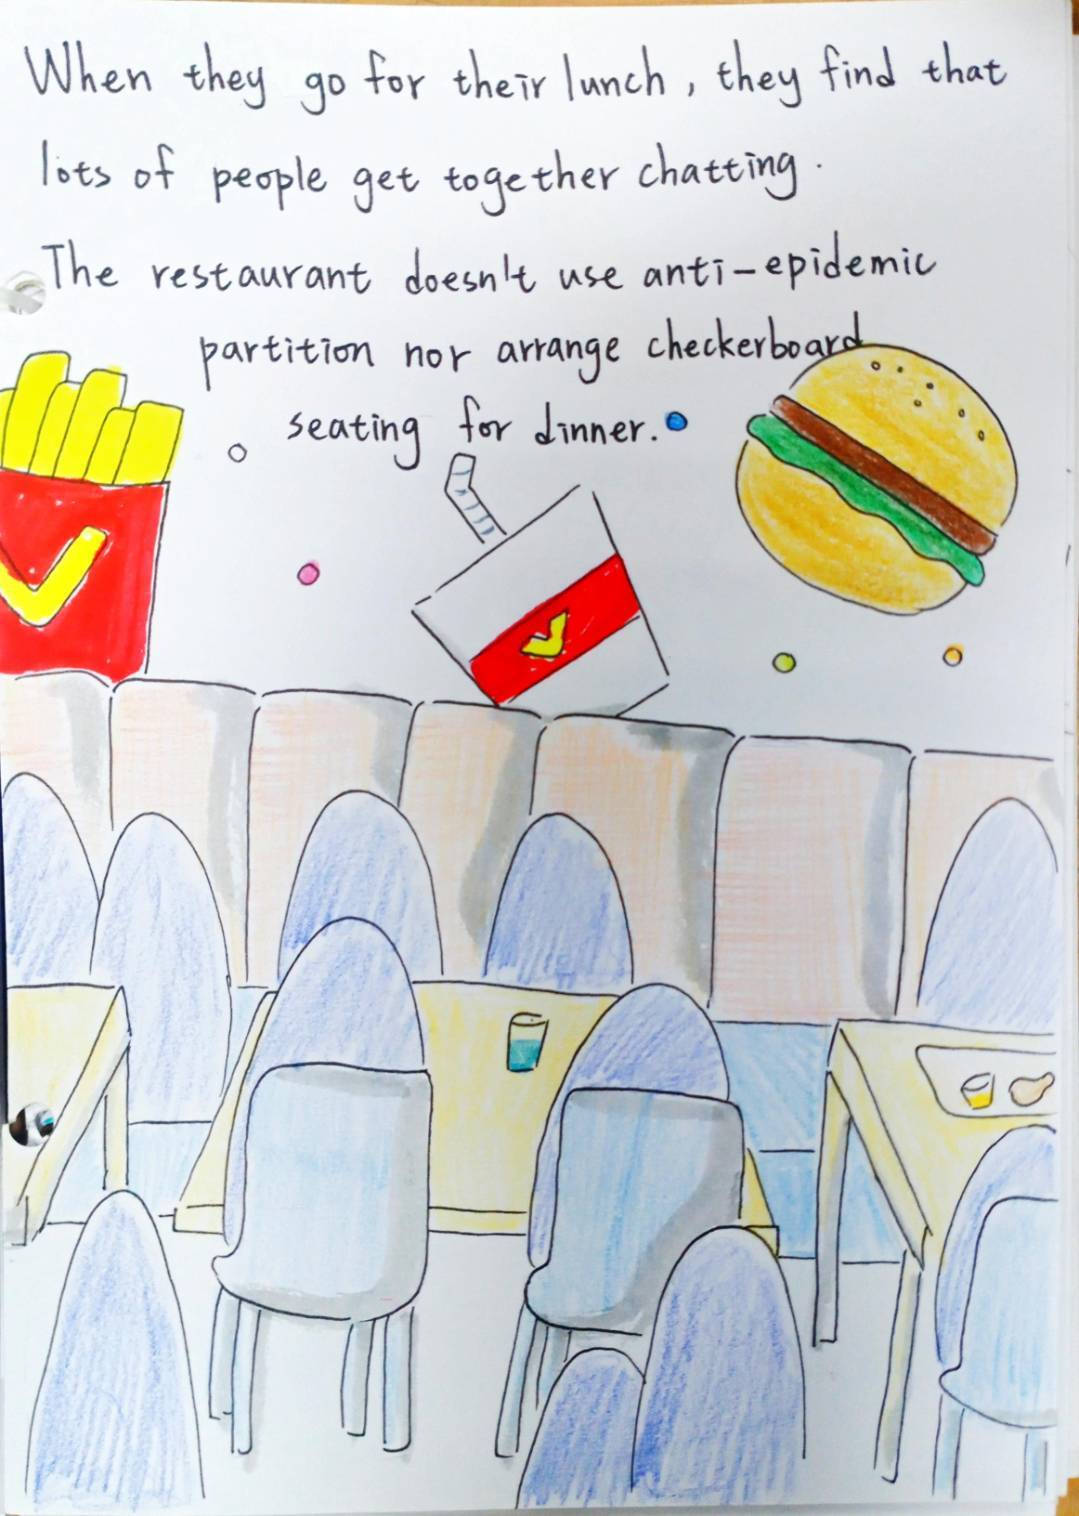 When they go for their lunch, they find that
lots of people get together chatting.
The restaurant doesn't use anti-epidemic
partition nor arrange checkerboard
seating for dinner.